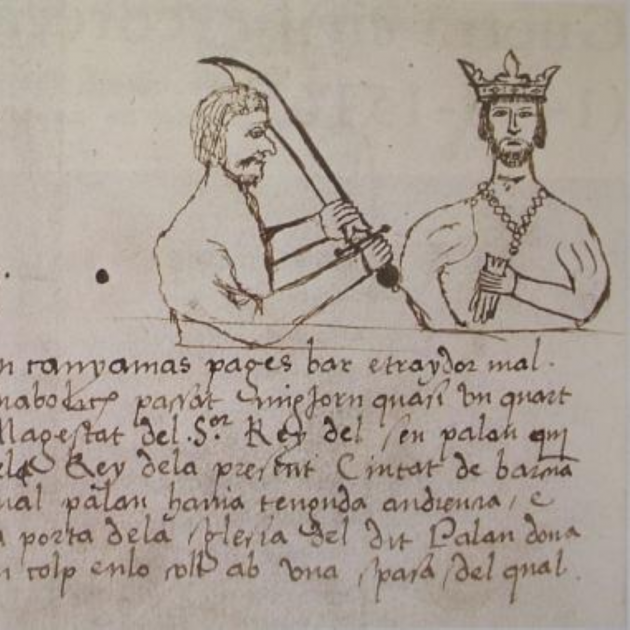 n canyamas pages bar e traydor mal
passat mig jorn quasi vn quart
Magestat del S.or Rey del seu palau qui
Rey dela present Ciutat de barna
ual palau hauia tenguda audiencia, e
a porta dela sglesia del dit Palau dona
n colp en lo coll ab vna spasa del qual